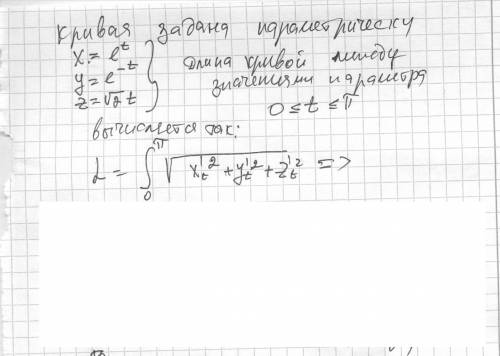 Кривая задана параметрическу
x = e^t
y = e^{-t}
z = √2 t
длина кривой между
значениями параметра
0 ≤ t ≤ π
вычисляется так:
L = ∫_0^π √(x'_t^2 + y'_t^2 + z'_t^2) =>